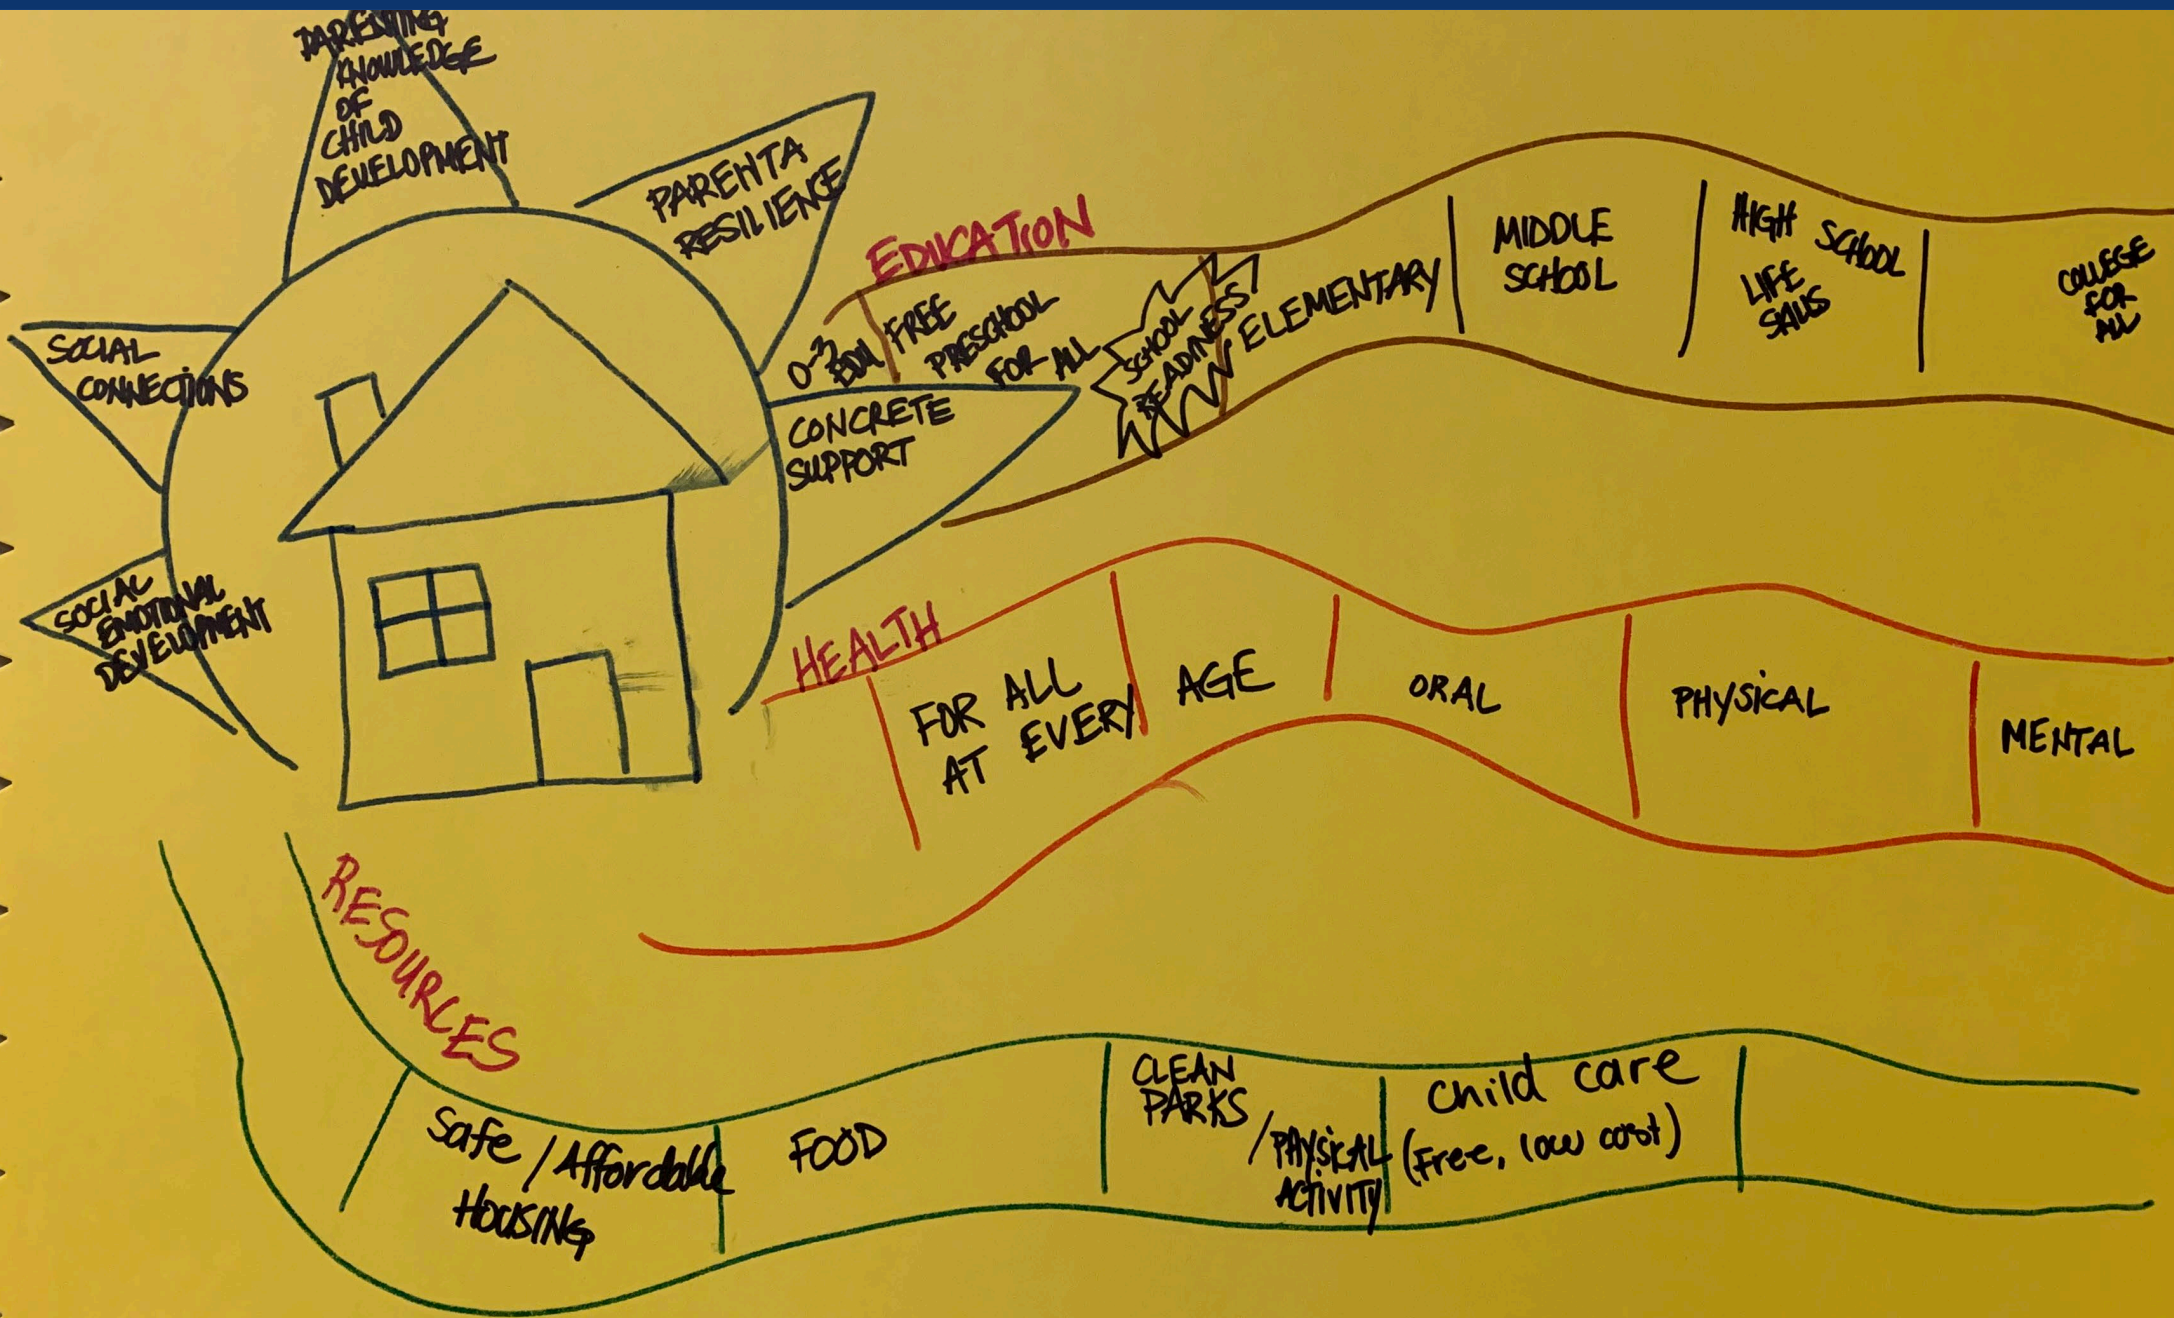 PARENTING
KNOWLEDGE
OF
CHILD
DEVELOPMENT
PARENTA
RESILIENCE
SOCIAL
CONNECTIONS
SOCIAL
EMOTIONAL
DEVELOPMENT
CONCRETE
SUPPORT
EDUCATION
0-3
EDU
FREE
PRESCHOOL
FOR ALL
SCHOOL
READINESS
ELEMENTARY
MIDDLE
SCHOOL
HIGH SCHOOL
LIFE
COLLEGE
FOR
ALL
HEALTH
FOR ALL
AT EVERY
AGE
ORAL
PHYSICAL
MENTAL
RESOURCES
Safe / Affordable
HOUSING
FOOD
CLEAN
PARKS
/ PHYSICAL
ACTIVITY
Child care
(Free, low cost)